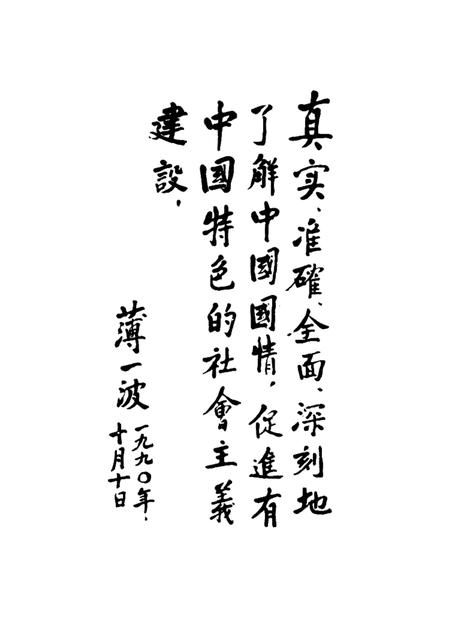 真实、准確、全面、深刻地
了解中國國情，促進有
中國特色的社會主義
建設，
薄一波
一九九〇年，
十月十日